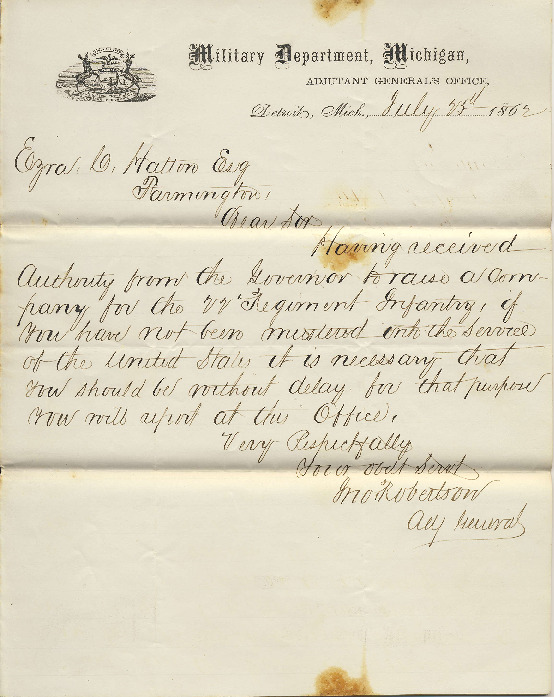 Military Department, Michigan,
ADJUTANT GENERAL'S OFFICE,
Detroit, Mich., July 23d 1862
Ezra. C. Hatton Esq
Farmington,
Dear Sir
Having received
Authority from the Governor to raise a Com-
pany for the 22d Regiment Infantry, if
You have not been mustered into the Service
of the United States it is necessary that
You should be without delay for that purpose
You will report at this Office,
Very Respectfully
Your obdt Servt
Jno Robertson
Adj General